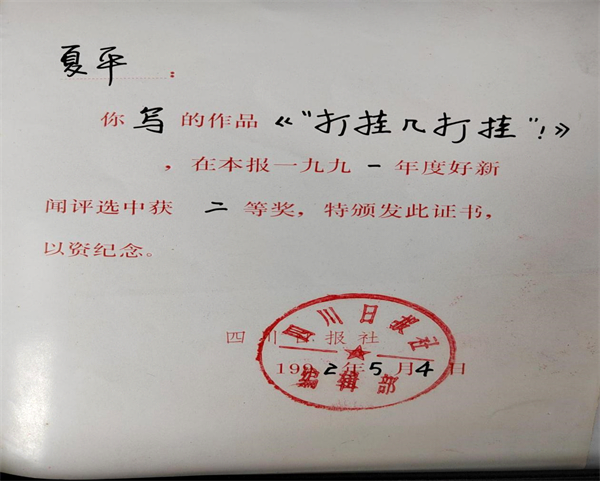 夏平：
你写的作品《“打挂几打挂”！》
，在本报一九九一年度好新
闻评选中获二等奖，特颁发此证书，
以资纪念。
四川日报社
1992年5月4日
四川日报社
编辑部